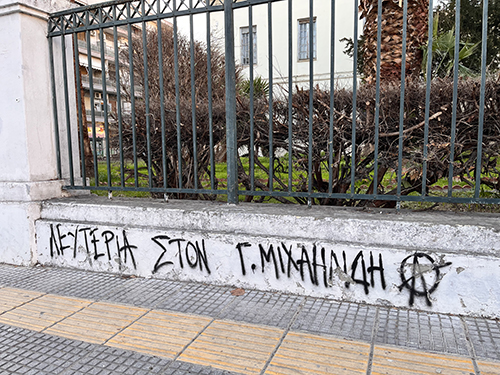 ΛΕΥΤΕΡΙΑ ΣΤΟΝ Γ. ΜΙΧΑΗΛΙΔΗ Ⓐ